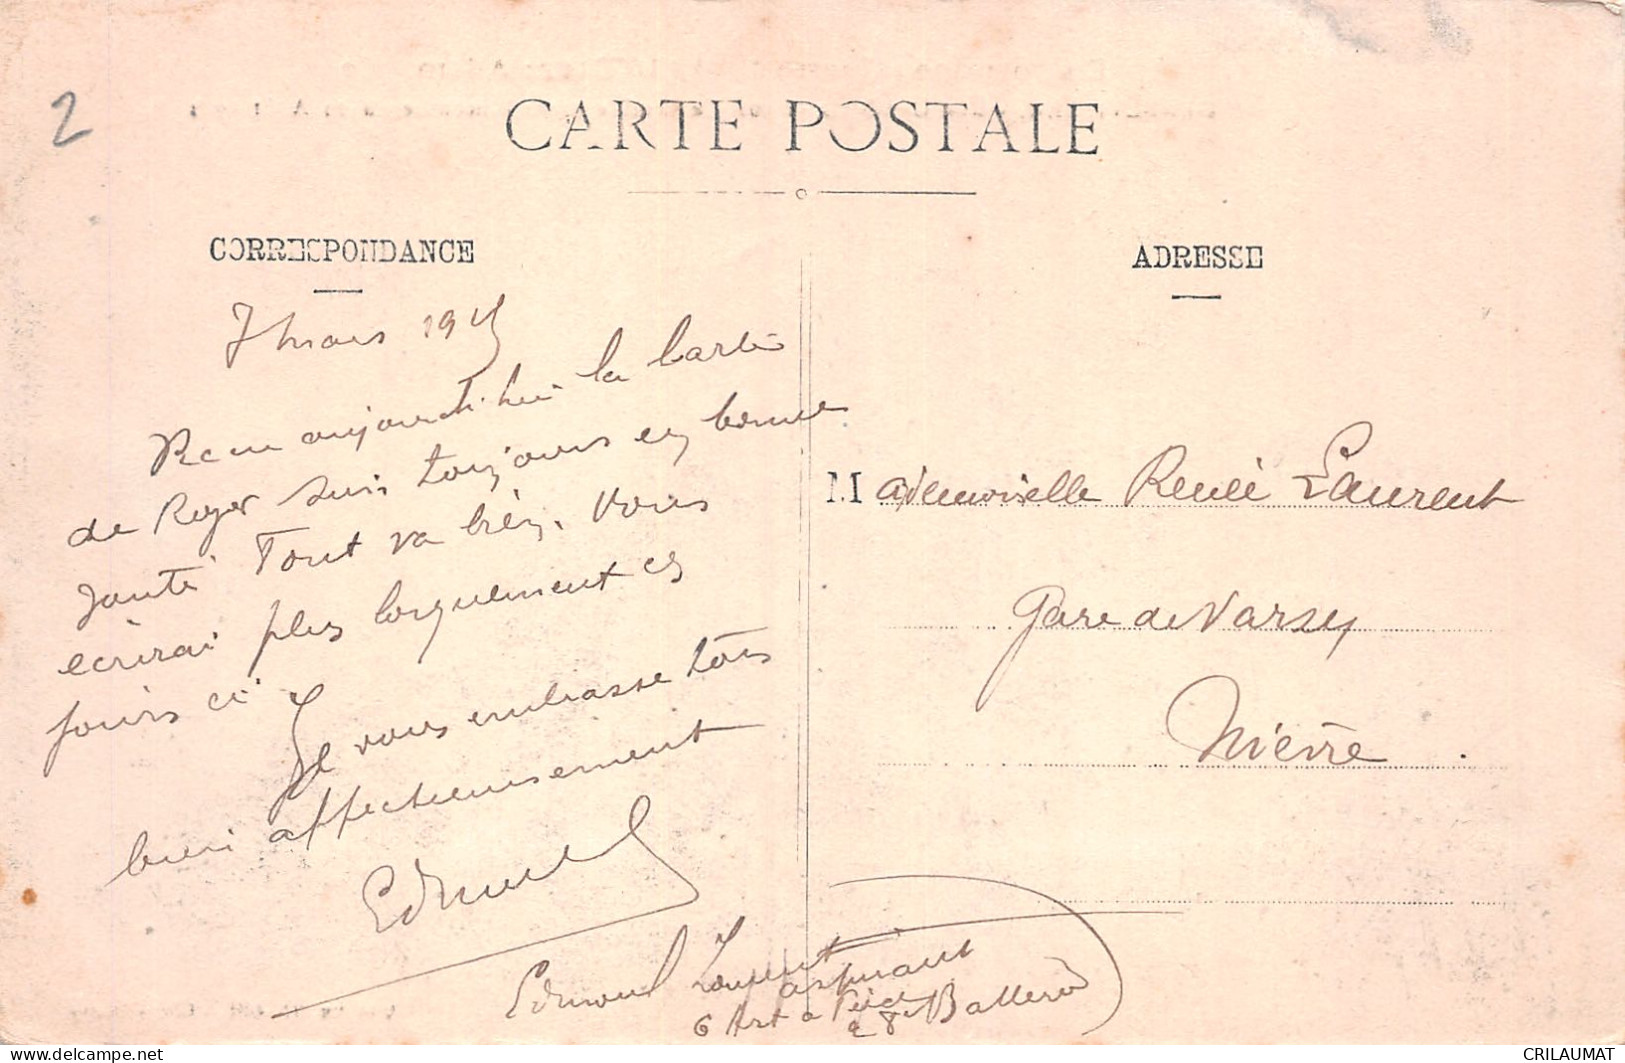 2
CARTE POSTALE
CORRESPONDANCE
ADRESSE
7 mars 1915
Reçu aujourd'hui la carte
de Roger suis toujours en bonne
santé Tout va bien. Vous
écrirai plus longuement ces
jours ci
Je vous embrasse tous
bien affectueusement
Edmond
Mademoiselle Renée Laurent
Gare de Varzy
Nièvre.
Edmond Laurent
aspirant
6 Art à Pied
28e Batterie
CRILAUMAT